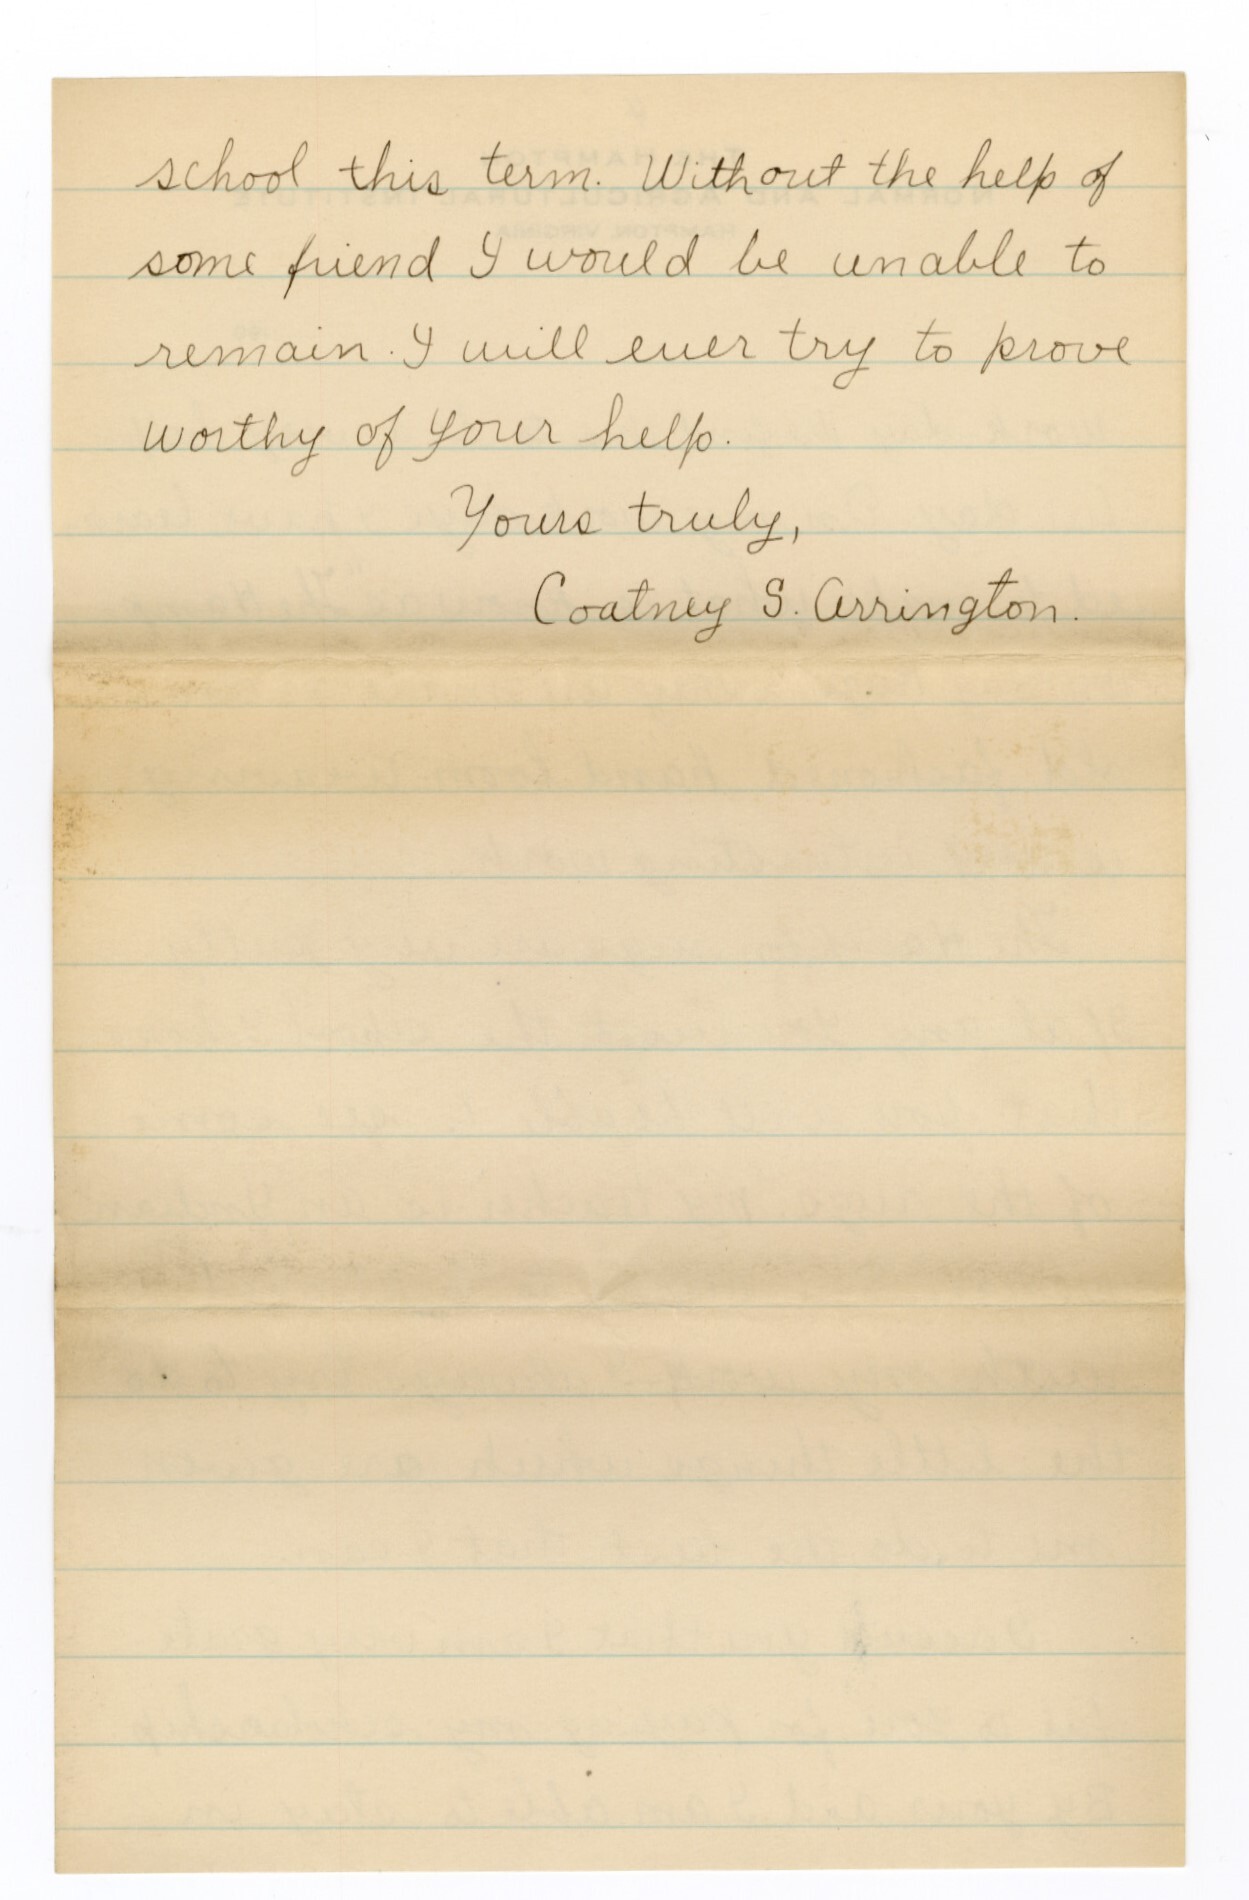 school this term. Without the help of
some friend I would be unable to
remain. I will ever try to prove
worthy of your help.
Yours truly,
Coatney S. Arrington.